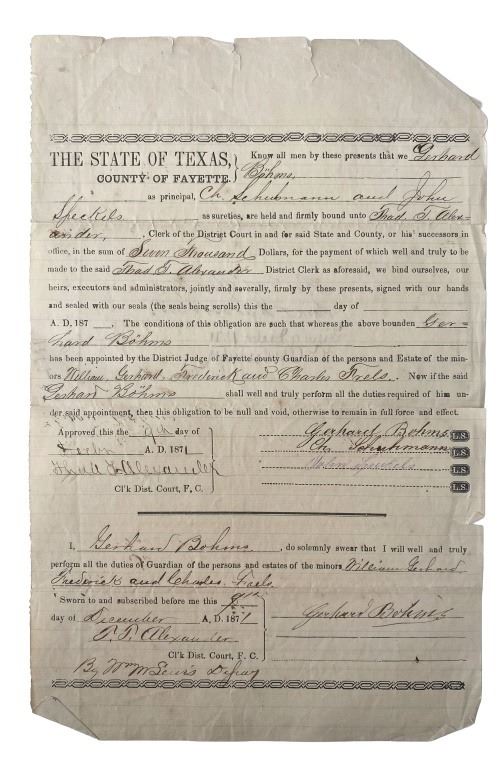 THE STATE OF TEXAS, } Know all men by these presents that we Gerhard
COUNTY OF FAYETTE. } Böhms,
as principal, Ch. Schuhmann and John
Speckels as sureties, are held and firmly bound unto Thad. T. Alex-
ander, Clerk of the District Court in and for said State and County, or his successors in
office, in the sum of Seven Thousand Dollars, for the payment of which well and truly to be
made to the said Thad. T. Alexander District Clerk as aforesaid, we bind ourselves, our
heirs, executors and administrators, jointly and severally, firmly by these presents, signed with our hands
and sealed with our seals (the seals being scrolls) this the day of
A. D. 187 . The conditions of this obligation are such that whereas the above bounden Ger-
hard Böhms
has been appointed by the District Judge of Fayette county Guardian of the persons and Estate of the min-
ors William, Gerhard, Frederick and Charles Frels. Now if the said
Gerhard Böhms shall well and truly perform all the duties required of him un-
der said appointment, then this obligation to be null and void, otherwise to remain in full force and effect.
Approved this the 9th day of Gerhard Bohms L.S.
A. D. 1871 Ch. Schuhmann L.S.
Thad T Alexander L.S.
Cl'k Dist. Court, F. C. L.S.
I, Gerhard Bohms, do solemnly swear that I will well and truly
perform all the duties of Guardian of the persons and estates of the minors William Gerhard
Frederick and Charles Frels.
Sworn to and subscribed before me this 9th
day of December A. D. 1871 Gerhard Bohms
T. T. Alexander
Cl'k Dist. Court, F. C.
By Wm M Lewis Depty